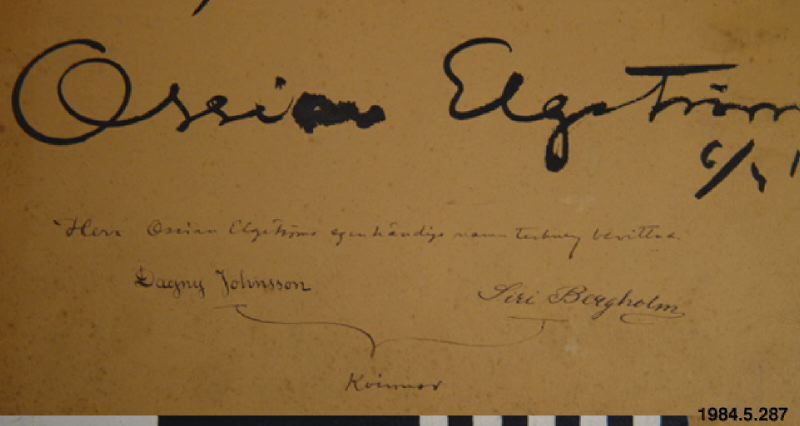 Ossian Elgström
6/4 1
"Herr Ossian Elgströms egenhändiga namnteckning bevittna:
Dagny Johnsson Siri Bergholm
Kvinnor
1984.5.287